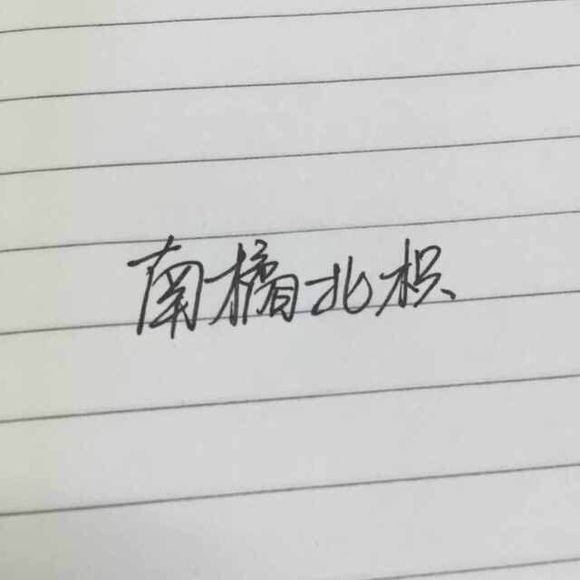 南橘北枳